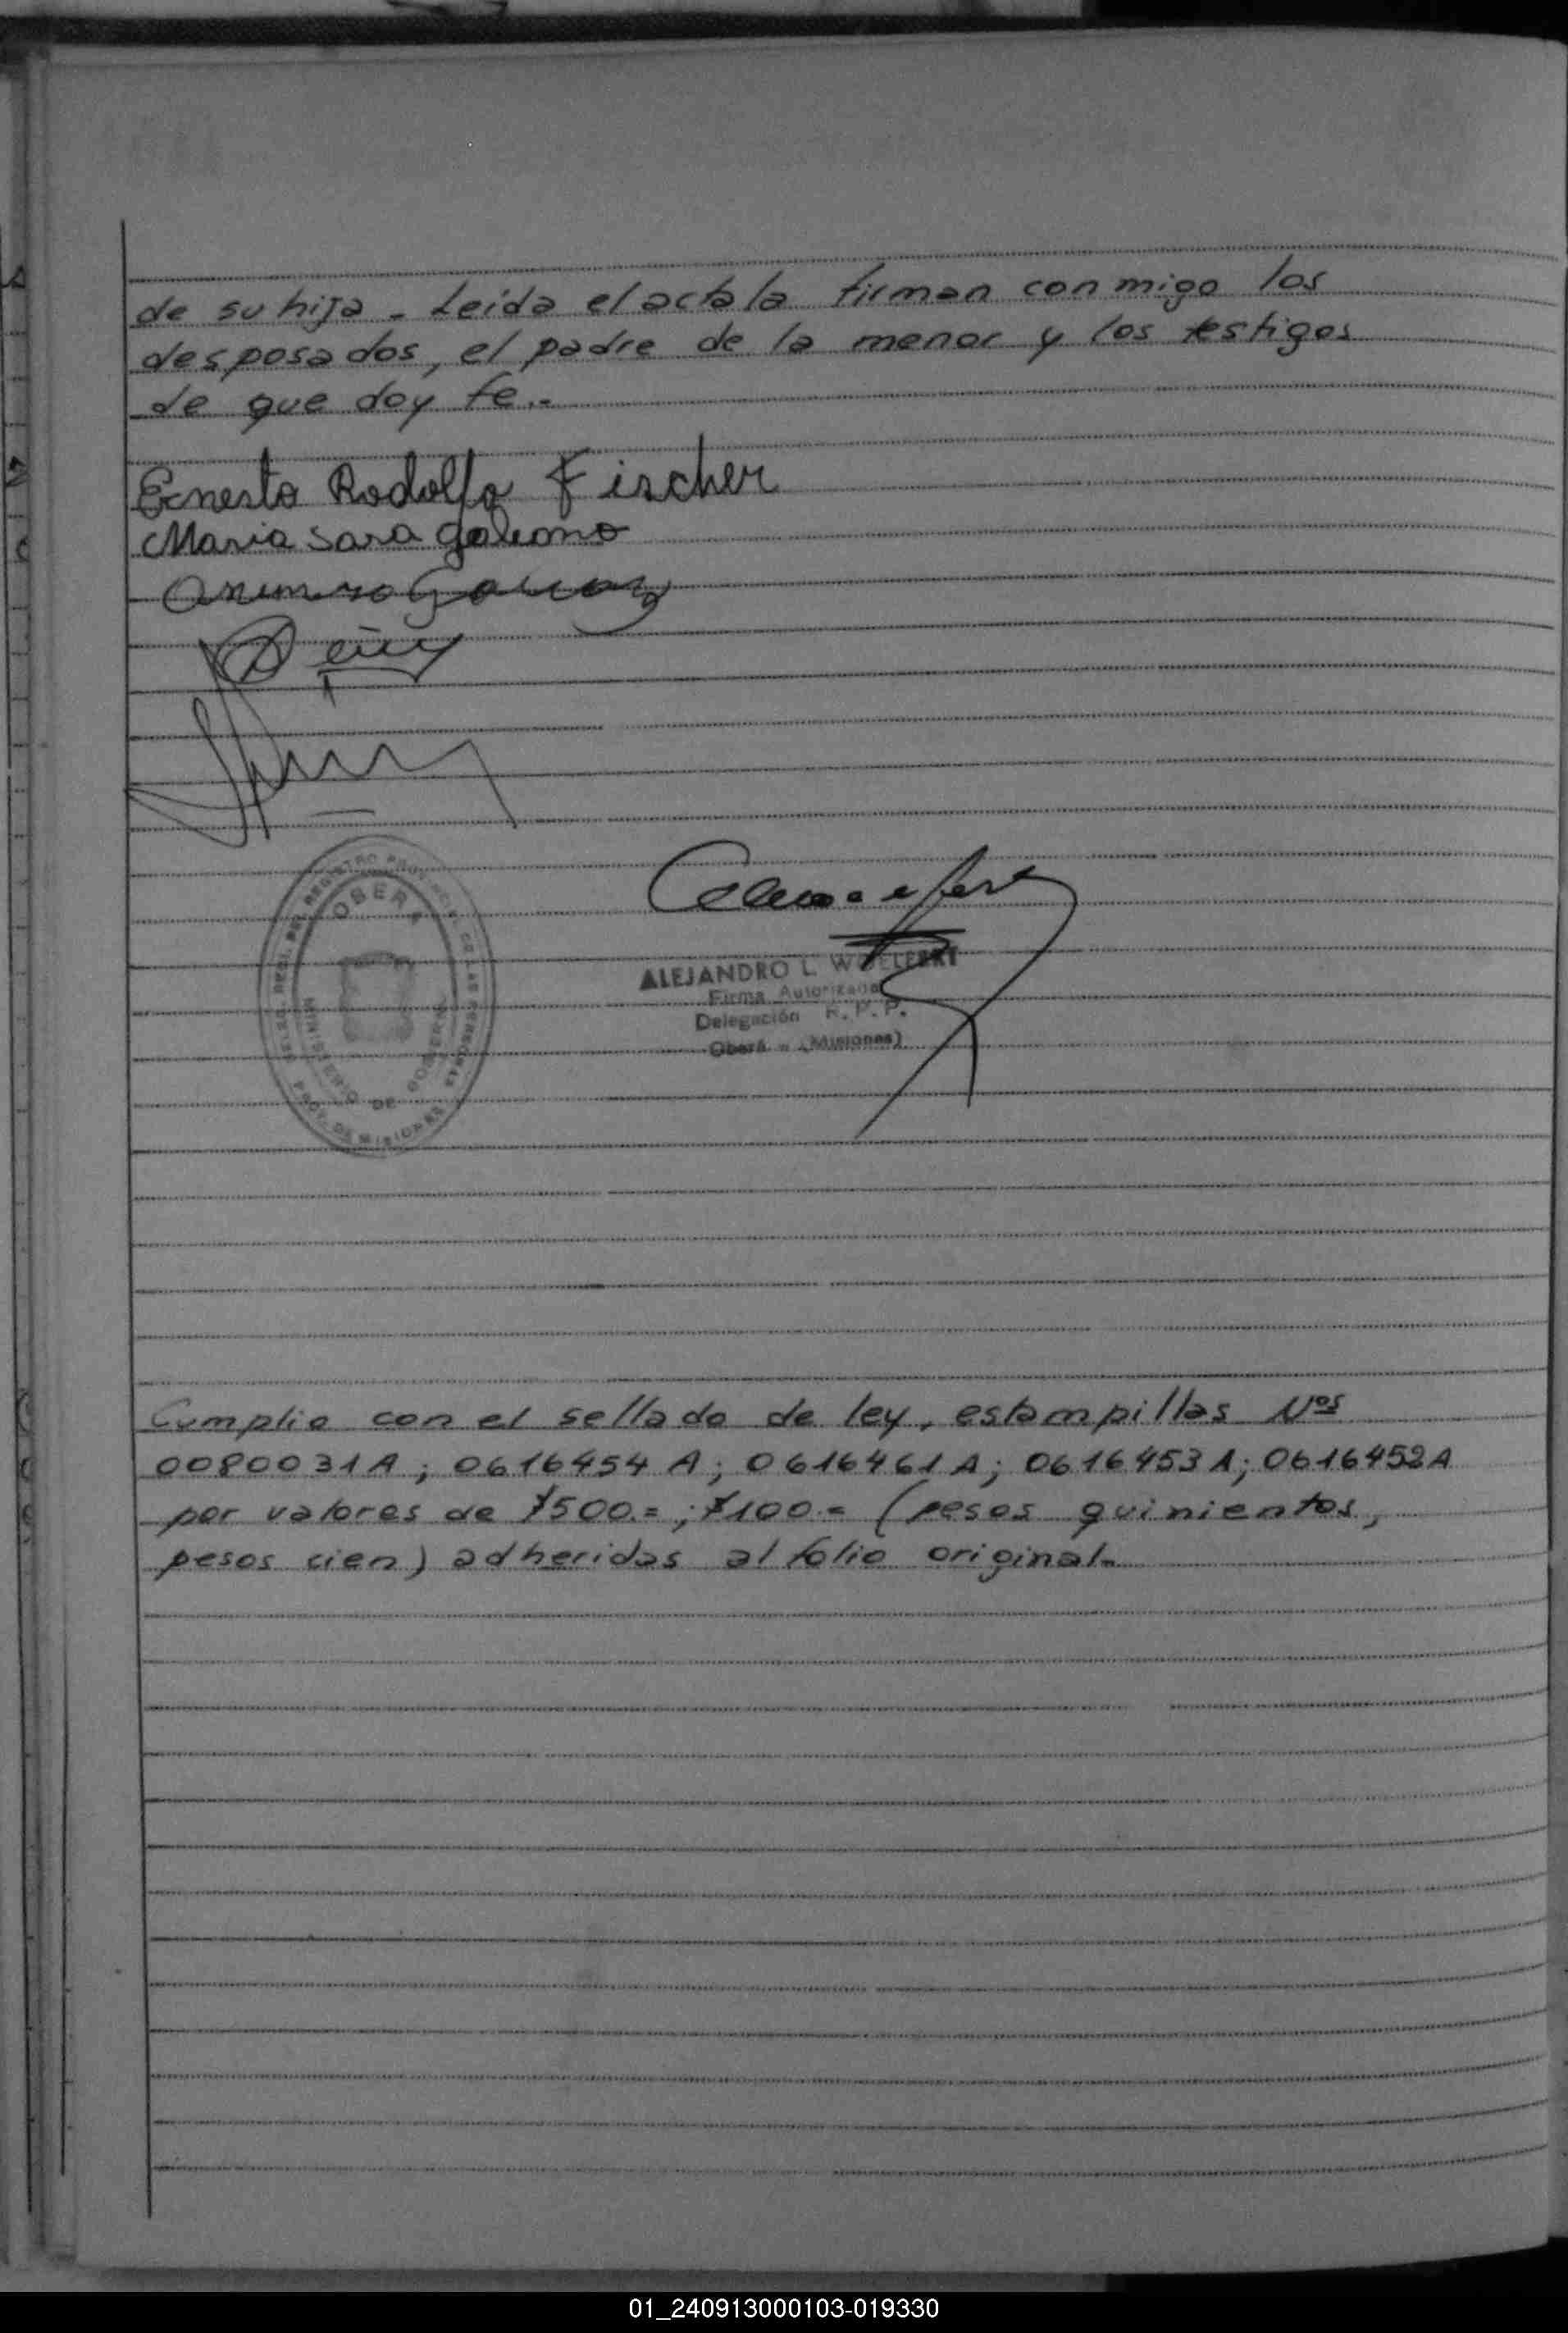 de su hija - Leida el acta la firman con migo los
desposados, el padre de la menor y los testigos
de que doy fe..
Ernesto Rodolfo Fischer
Maria Sara galeano
OBERA
MINISTERIO DE GOBIERNO
PROV. DE MISIONES
ALEJANDRO L.
Firma Autorizada
Delegación R. P. P.
Oberá - (Misiones)
Cumplio con el sellado de ley, estampillas Nos
0080031A; 0616454 A; 0616461A; 0616453A; 0616452A
por valores de $500.=; $100.= (pesos quinientos,
pesos cien) adheridas al folio original-
01_240913000103-019330